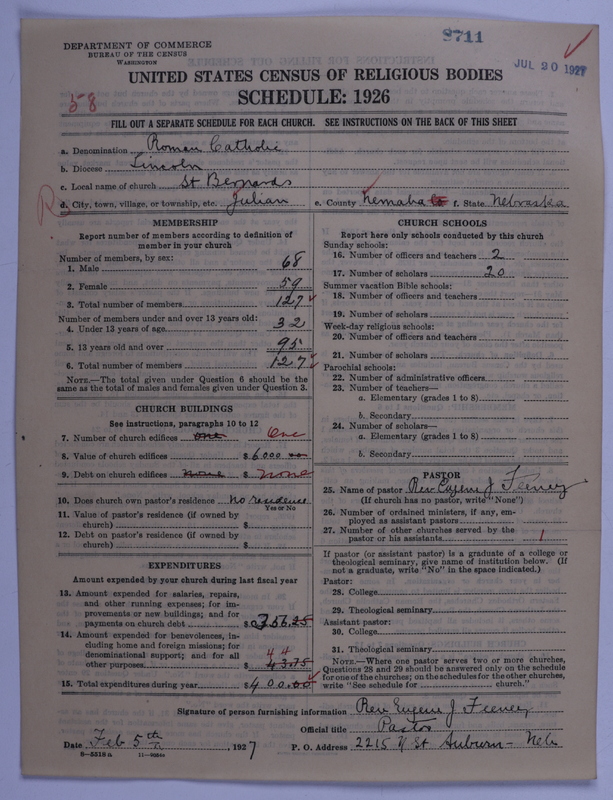 8711
DEPARTMENT OF COMMERCE
BUREAU OF THE CENSUS
WASHINGTON
JUL 20 1927
UNITED STATES CENSUS OF RELIGIOUS BODIES
58
SCHEDULE: 1926
FILL OUT A SEPARATE SCHEDULE FOR EACH CHURCH. SEE INSTRUCTIONS ON THE BACK OF THIS SHEET
a. Denomination Roman Catholic
b. Diocese Lincoln
c. Local name of church St Bernards
R d. City, town, village, or township, etc. Julian e. County Nemaha Co f. State Nebraska
MEMBERSHIP
Report number of members according to definition of
member in your church
Number of members, by sex:
1. Male 68
2. Female 59
3. Total number of members 127
Number of members under and over 13 years old:
4. Under 13 years of age 32
5. 13 years old and over 95
6. Total number of members 127
NOTE.—The total given under Question 6 should be
the same as the total of males and females given under Question 3.
CHURCH BUILDINGS
See instructions, paragraphs 10 to 12
7. Number of church edifices one One
8. Value of church edifices $ 6000 00
9. Debt on church edifices none $ none
10. Does church own pastor's residence no residence
Yes or No
11. Value of pastor's residence (if owned by
church) $
12. Debt on pastor's residence (if owned by
church) $
EXPENDITURES
Amount expended by church during last fiscal year
13. Amount expended for salaries, repairs,
and other running expenses; for im-
provements or new buildings; and for
payments on church debt $ 356.25
14. Amount expended for benevolences, in-
cluding home and foreign missions; for
denominational support; and for all
other purposes 44 43.75
15. Total expenditures during year $ 400.00
CHURCH SCHOOLS
Report here only schools conducted by this church
Sunday schools:
16. Number of officers and teachers 2
17. Number of scholars 20
Summer vacation Bible schools:
18. Number of officers and teachers
19. Number of scholars
Week-day religious schools:
20. Number of officers and teachers
21. Number of scholars
Parochial schools:
22. Number of administrative officers
23. Number of teachers—
a. Elementary (grades 1 to 8)
b. Secondary
24. Number of scholars—
a. Elementary (grades 1 to 8)
b. Secondary
PASTOR
25. Name of pastor Rev Eugene J Feeney
(If church has no pastor, write "None")
26. Number of ordained ministers, if any, em-
ployed as assistant pastors
27. Number of other churches served by the
pastor or his assistants 1
If pastor (or assistant pastor) is a graduate of a college or
theological seminary, give name of institution below. (If
not a graduate, write "No" in the space indicated.)
Pastor:
28. College
29. Theological seminary
Assistant pastor:
30. College
31. Theological seminary
NOTE.—Where one pastor serves two or more churches,
Questions 28 and 29 should be answered only on the schedule
for one of the churches; on the schedules for the other churches,
write "See schedule for church."
Signature of person furnishing information Rev Eugene J Feeney
Official title Pastor
Date Feb 5th, 1927 P. O. Address 2215 N St Auburn - Neb
8—5518a 11—9584a